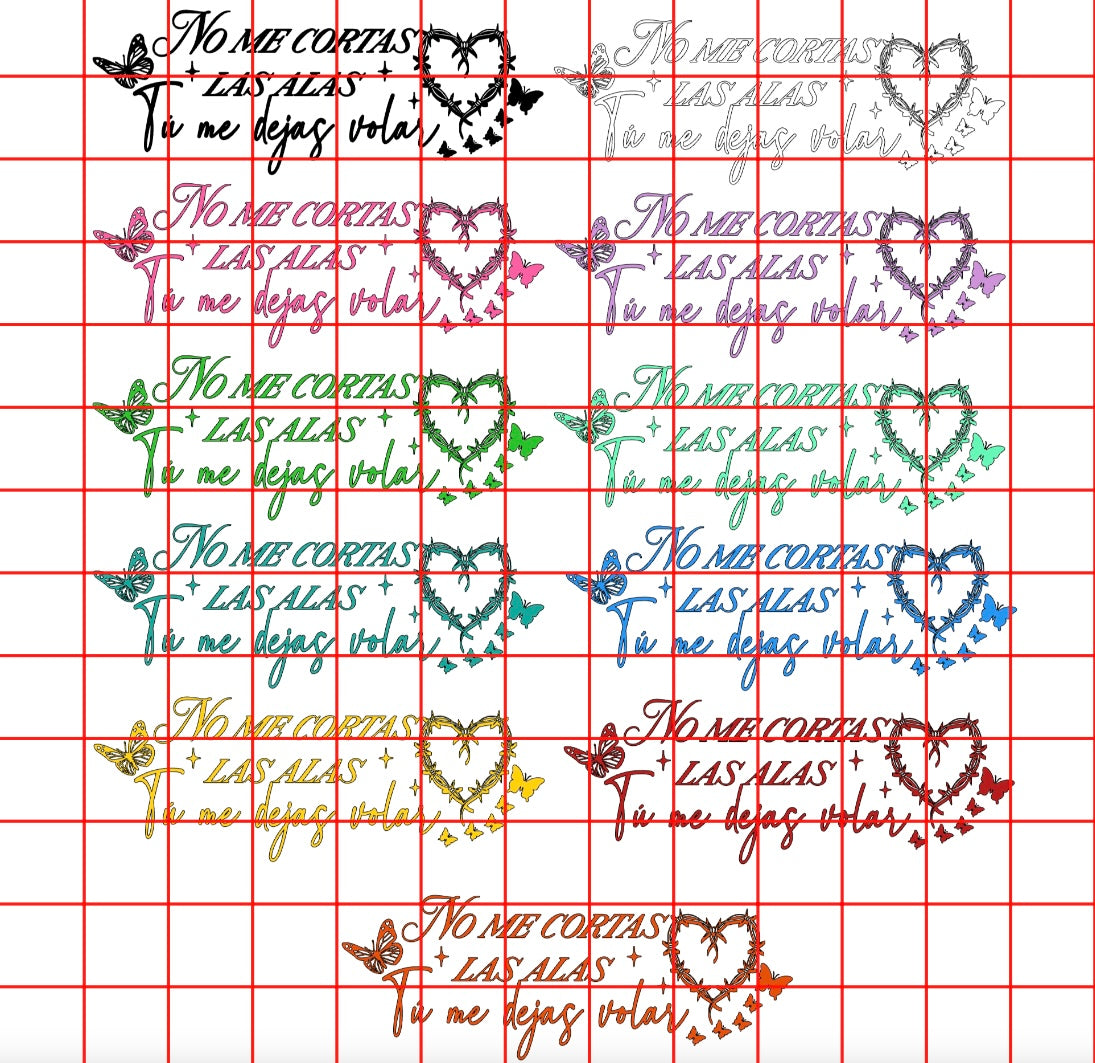 No me cortas
las alas
Tú me dejas volar
No me cortas
las alas
Tú me dejas volar
No me cortas
las alas
Tú me dejas volar
No me cortas
las alas
Tú me dejas volar
No me cortas
las alas
Tú me dejas volar
No me cortas
las alas
Tú me dejas volar
No me cortas
las alas
Tú me dejas volar
No me cortas
las alas
Tú me dejas volar
No me cortas
las alas
Tú me dejas volar
No me cortas
las alas
Tú me dejas volar
No me cortas
las alas
Tú me dejas volar